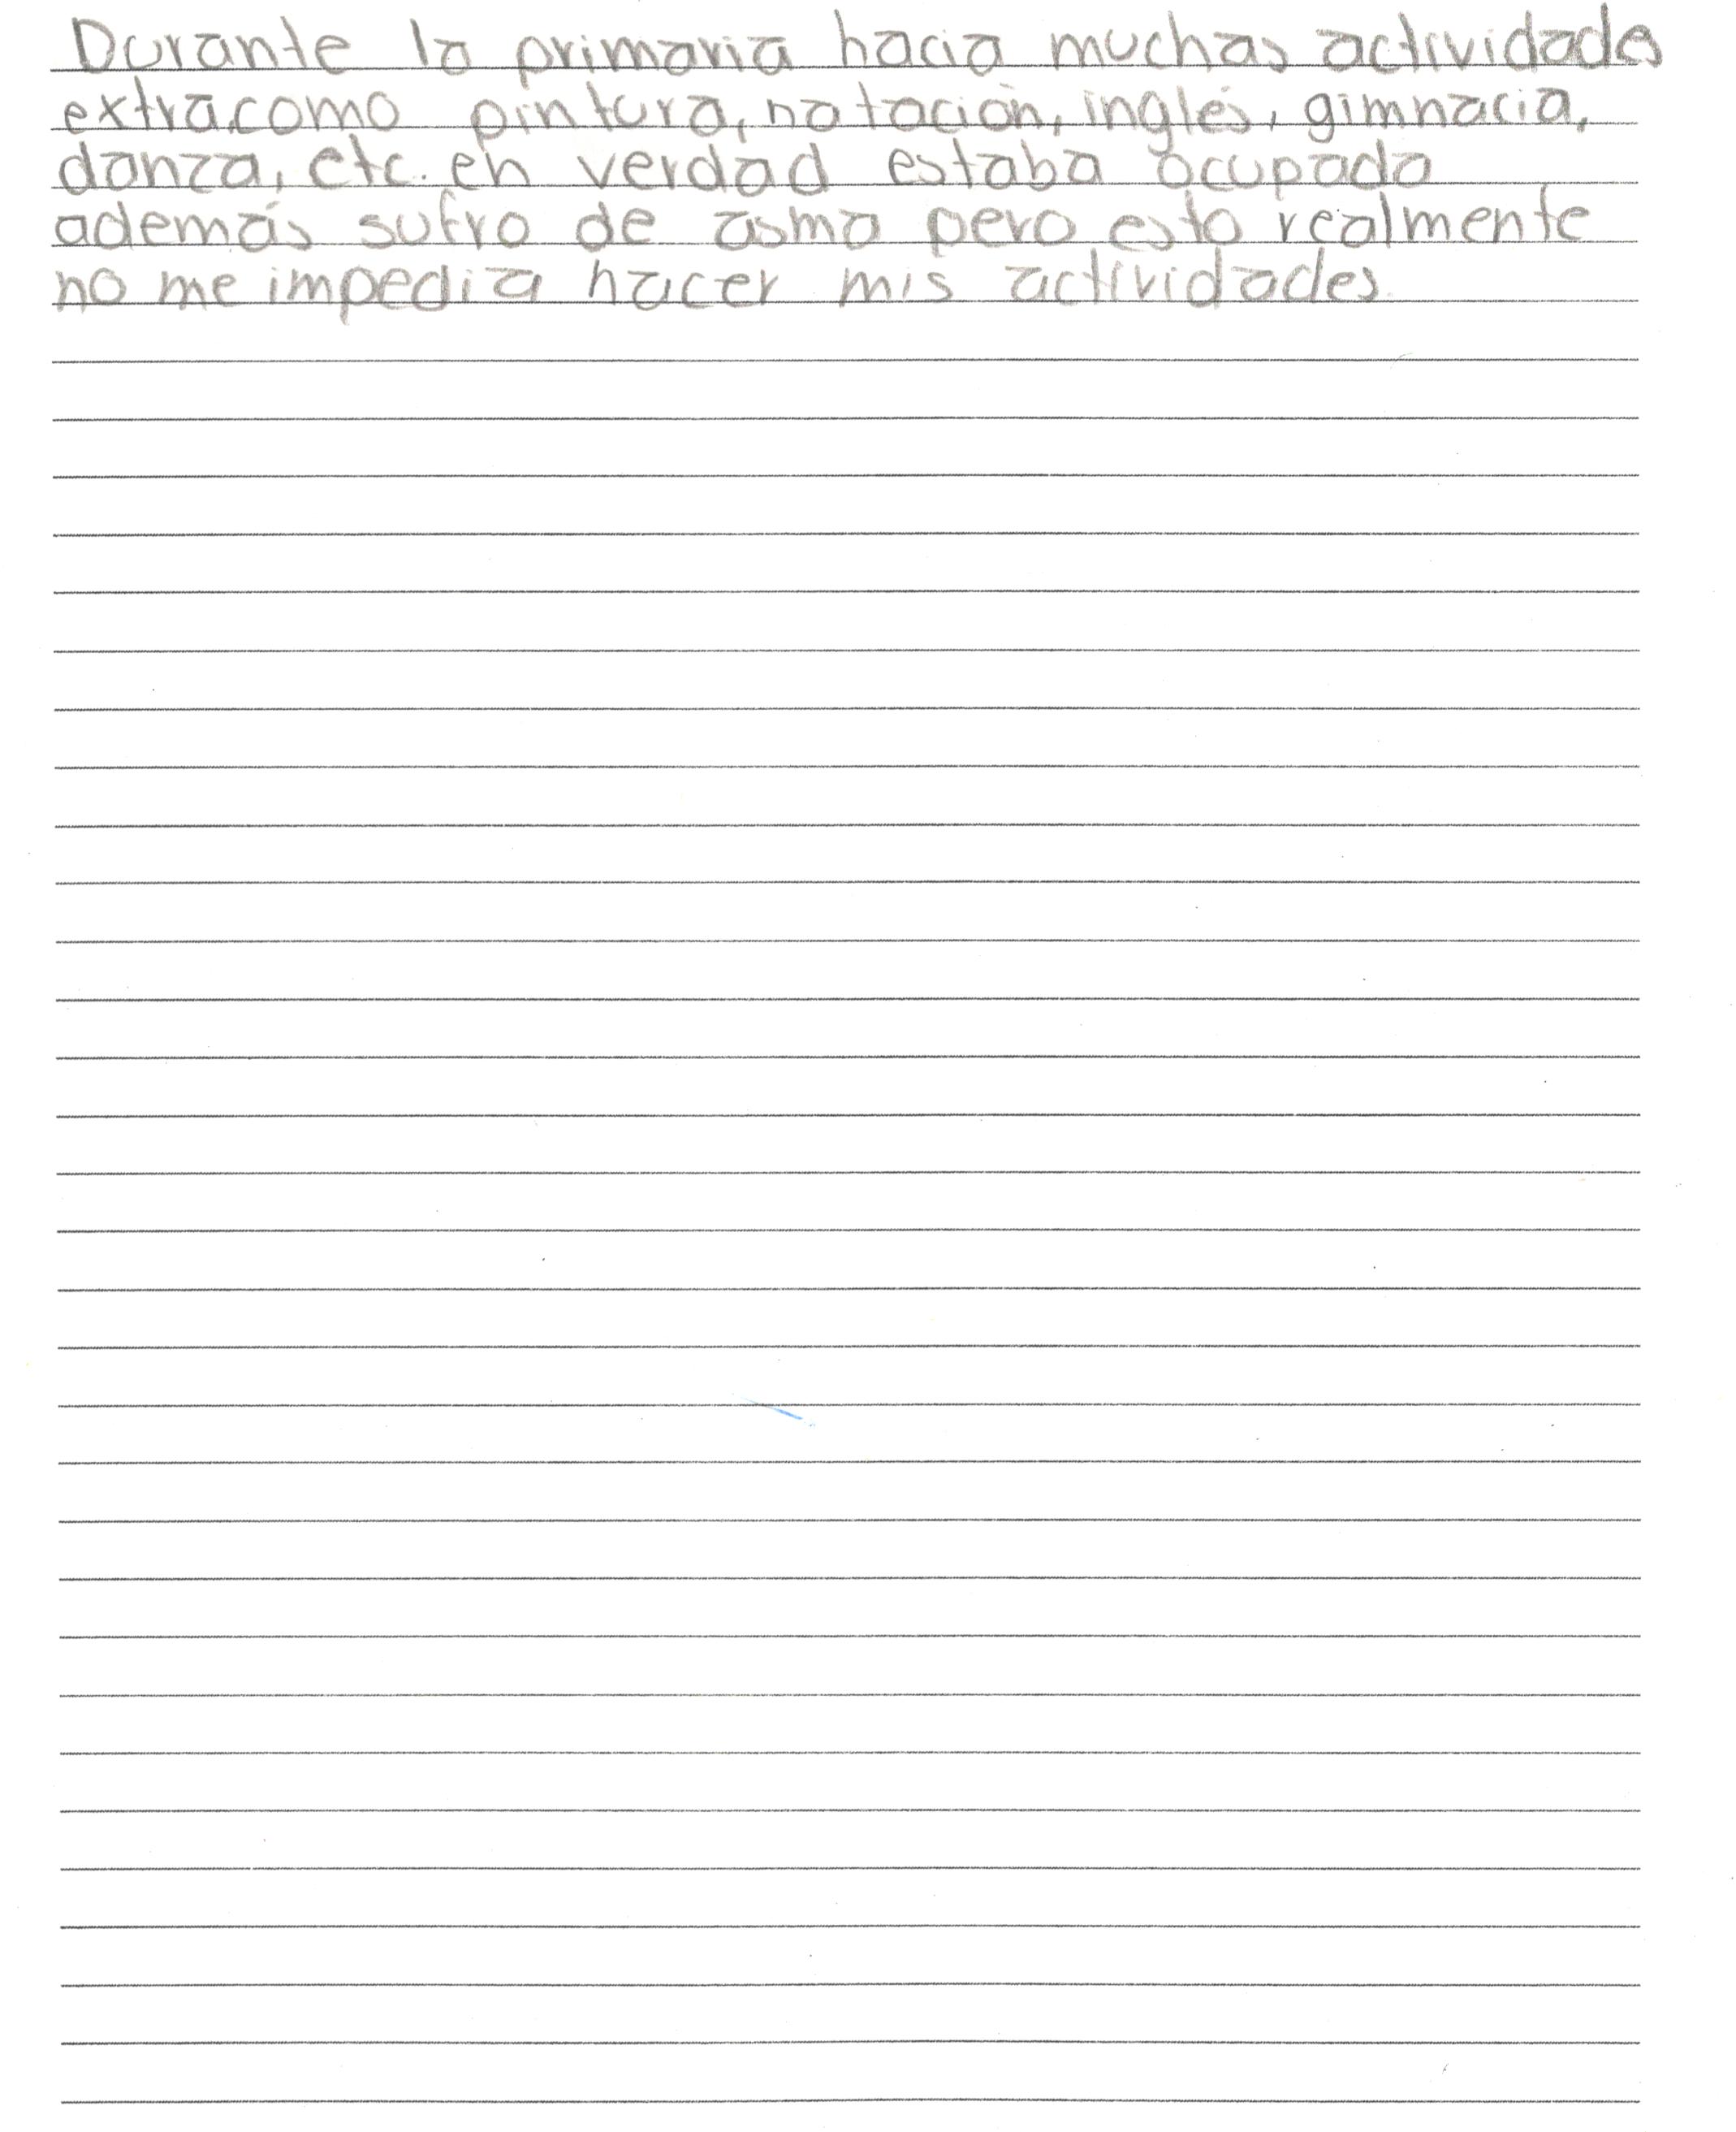 Durante la primaria hacia muchas actividades
extra,como pintura, natación, inglés, gimnacia,
danza, etc. en verdad estaba ocupada
además sufro de asma pero esto realmente
no me impedia hacer mis actividades.